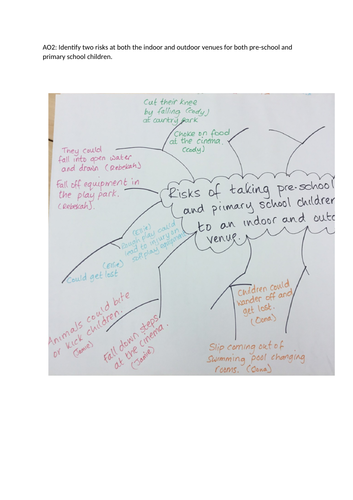 AO2: Identify two risks at both the indoor and outdoor venues for both pre-school and
primary school children.
Cut their knee
by falling (Cody)
at country park
Choke on food
at the cinema
(Cody)
They could
fall into open water
and drown (Rebekah)
Fall off equipment in
the play park.
(Rebekah).
Risks of taking pre-school
and primary school children
to an indoor and outd
venue.
(Rosie)
Rough play could
lead to injury on
play equipment
(Rosie)
Could get lost
Animals could bite
or kick children.
(Jamie)
Fall down steps
at the cinema
(Jamie)
Children could
wander off and
get lost.
(Oona)
Slip coming out of
Swimming pool changing
rooms. (Oona)